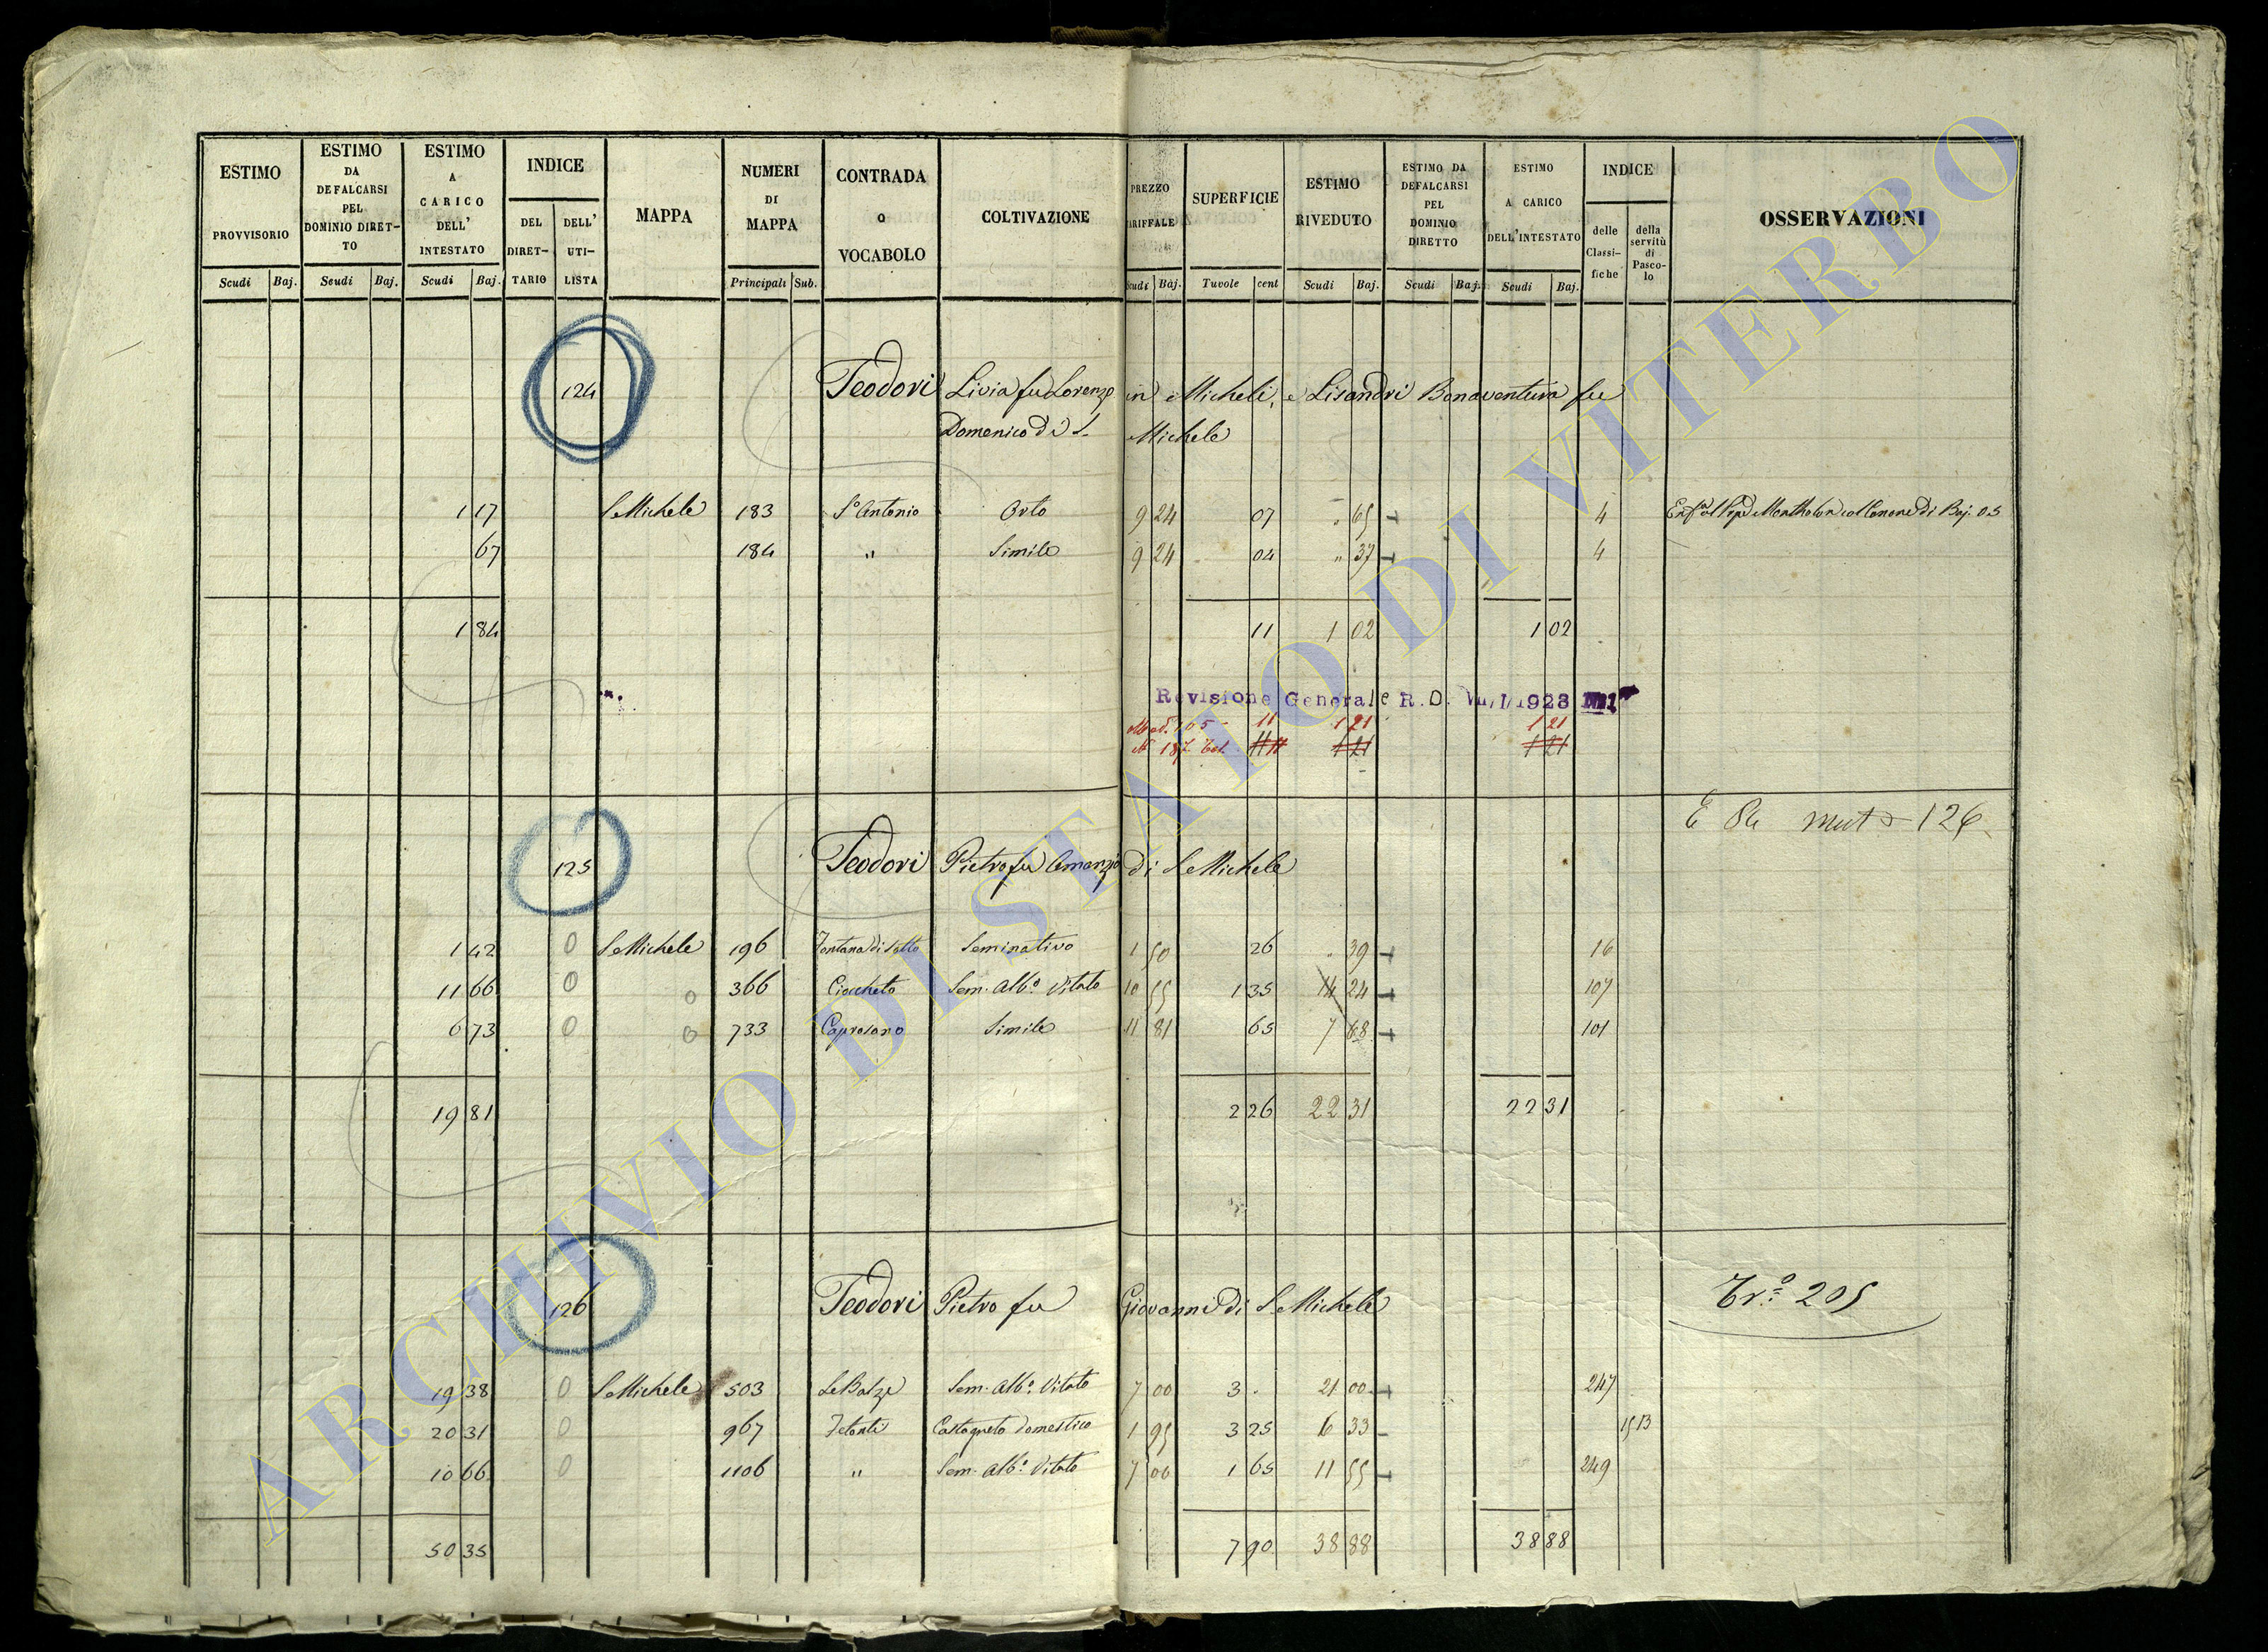 ESTIMO PROVVISORIO Scudi Baj.
ESTIMO DA DEFALCARSI PEL DOMINIO DIRET-TO Scudi Baj.
ESTIMO A CARICO DELL' INTESTATO Scudi Baj.
INDICE DEL DIRET-TARIO DELL' UTI-LISTA
MAPPA
NUMERI DI MAPPA Principali Sub.
CONTRADA O VOCABOLO
COLTIVAZIONE
PREZZO TARIFFALE Scudi Baj.
SUPERFICIE Tavole cent
ESTIMO RIVEDUTO Scudi Baj.
ESTIMO DA DEFALCARSI PEL DOMINIO DIRETTO Scudi Baj.
ESTIMO A CARICO DELL'INTESTATO Scudi Baj.
INDICE delle Classi-fiche della servitù di Pasco-lo
OSSERVAZIONI
124 Teodori Livia fu Lorenzo in Micheli, e Lisandri Bonaventura fu
Domenico di S. Michele
1 17 S Michele 183 S. Antonio Orto 9 24 07 " 65 4 di Baj. 05
67 184 " Simile 9 24 04 " 37 4
1 84 11 1 02 1 02
Revisione Generale R.D. 1/1923
11 1 21 1 21
N 187 11 1 21 1 21
E 84 mut 126
125 Teodori Pietro fu Amanzio di S Michele
1 42 0 S Michele 196 Fontana di Sotto Seminativo 1 50 26 " 39 16
11 66 0 0 366 Ciocheto Sem. Alb.o Vitato 10 55 1 35 14 24 107
6 73 0 0 733 Caprosano Simile 11 81 65 7 68 101
19 81 2 26 22 31 22 31
126 Teodori Pietro fu Giovanni di S Michele Tr.o 205
19 38 0 S Michele 503 Le Balze Sem. Alb.o Vitato 7 00 3 . 21 00 247
20 31 0 967 Castagneto domestico 1 95 3 25 6 33 1513
10 66 0 1106 " Sem. Alb.o Vitato 7 00 1 65 11 55 249
50 35 7 90 38 88 38 88
ARCHIVIO DI STATO DI VITERBO